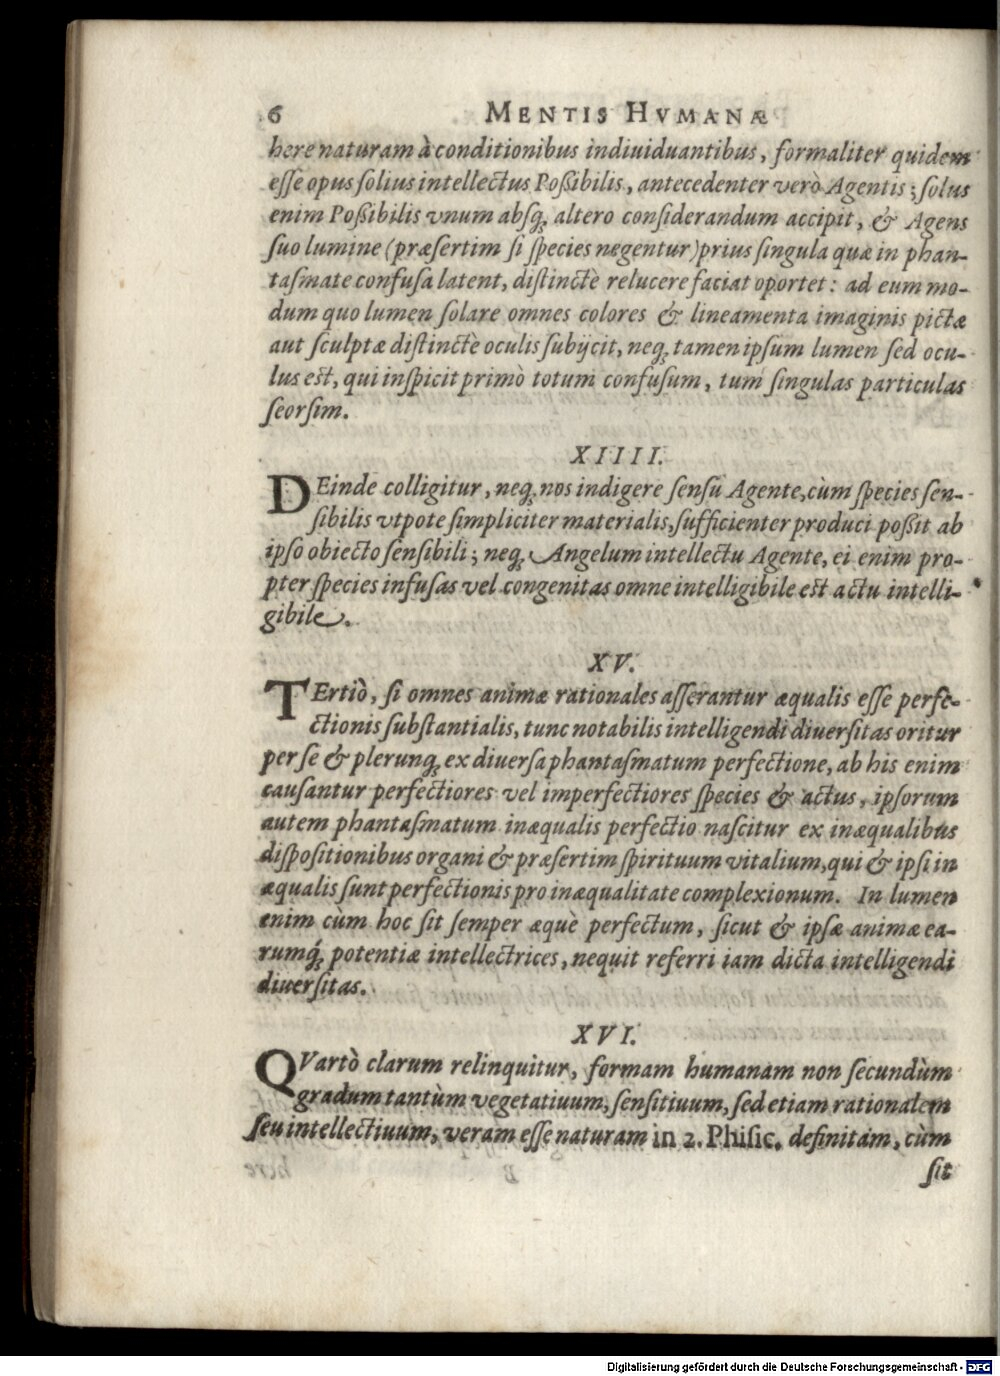 6 MENTIS HVMANÆ
here naturam à conditionibus indiuiduantibus, formaliter quidem
esse opus solius intellectus Poßibilis, antecedenter verò Agentis; solus
enim Poßibilis vnum absq; altero considerandum accipit, & Agens
suo lumine (præsertim si species negentur) prius singula quæ in phan-
tasmate confusa latent, distinctè relucere faciat oportet: ad eum mo-
dum quo lumen solare omnes colores & lineamenta imaginis pictæ
aut sculptæ distinctè oculis subijcit, neq; tamen ipsum lumen sed ocu-
lus est, qui inspicit primò totum confusum, tum singulas particulas
seorsim.
XIIII.
DEinde colligitur, neq; nos indigere sensu Agente, cùm species sen-
sibilis vtpote simpliciter materialis, sufficienter produci poßit ab
ipso obiecto sensibili; neq; Angelum intellectu Agente, ei enim pro-
pter species infusas vel congenitas omne intelligibile est actu intelli-
gibile.
XV.
TErtiò, si omnes animæ rationales asserantur æqualis esse perfe-
ctionis substantialis, tunc notabilis intelligendi diuersitas oritur
per se & plerunq; ex diuersa phantasmatum perfectione, ab his enim
causantur perfectiores vel imperfectiores species & actus, ipsorum
autem phantasmatum inæqualis perfectio nascitur ex inæqualibus
dispositionibus organi & præsertim spirituum vitalium, qui & ipsi in
æqualis sunt perfectionis pro inæqualitate complexionum. In lumen
enim cùm hoc sit semper æquè perfectum, sicut & ipsæ animæ ea-
rumq́; potentiæ intellectrices, nequit referri iam dicta intelligendi
diuersitas.
XVI.
QVartò clarum relinquitur, formam humanam non secundùm
gradum tantùm vegetatiuum, sensitiuum, sed etiam rationalem
seu intellectiuum, veram esse naturam in 2. Phisic. definitam, cùm
sit
Digitalisierung gefördert durch die Deutsche Forschungsgemeinschaft - DFG